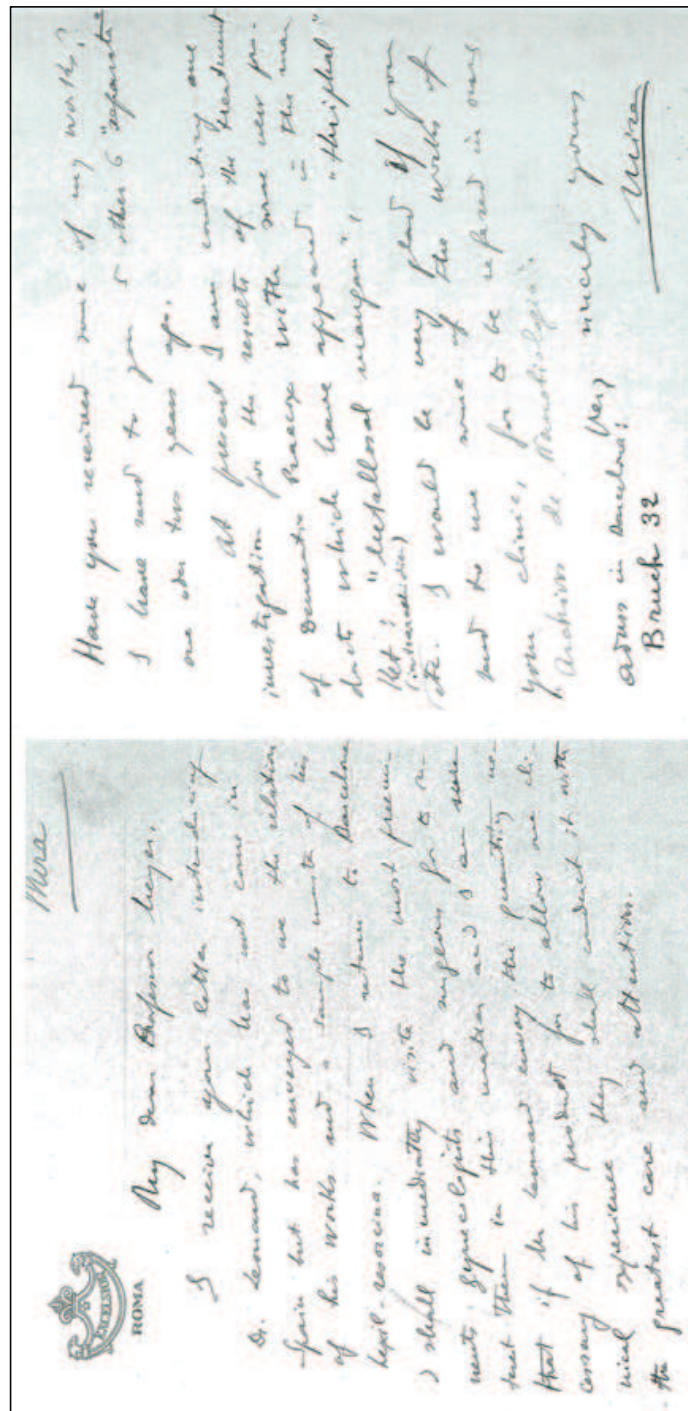 Mira
EXCELSIOR
ROMA
My dear Professor Meyer,
I receive your letter introducing
Dr. Leonard, which has not come in
Spain but has envoyed to me the relation
of his works and a sample of his
hexil-resorcina. When I return to Barcelona
I shall inmediatly visite the most
nent gynecologists and surgeons for to in-
terest them in this matter and I am
that if Dr Leonard envoy the quantity ne-
cessary of his product for to allow one cli-
nical experience they shall conduct it with
the greatest care and attention.
Have you received some of my works?
I have send to you 5 other 6 "separate
one oder two years ago.
At present I am conducting one
investigation for the results of the treatment
of Dementia Praecox with some new pro-
ducts which have appeared in the mar-
ket: "metallosal mangan",
(intracardia)
etc. I would be very glad if you
send to me some of the works of
your clinic, for to be refered in ours
Archivos de Neurobiología.
Very sincerely yours
adress in Barcelona:
Bruch 32
Mira